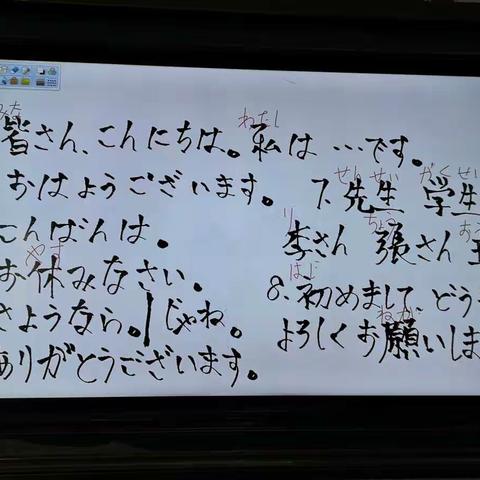 みな わたし
皆さん、こんにちは。私は…です。
おはようございます。
こんばんは。
やす
お休みなさい。
さようなら。|じゃね。
ありがとうございます。
せんせい がくせい
7. 先生 学生
り ちょう おう
李さん 張さん 王
はじ
8. 初めまして、どう
ねが
よろしくお願いしま